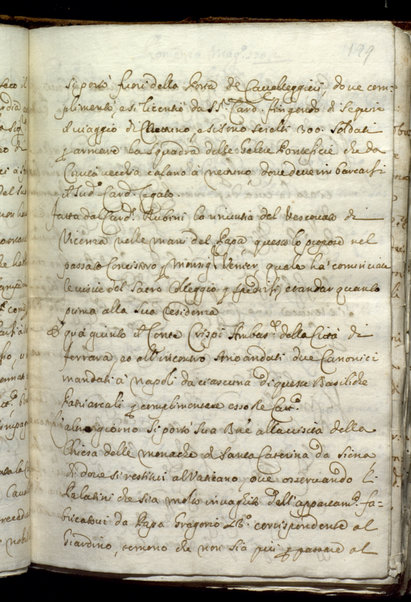 199
si portò fuori della Porta di Cavalleggieri, dove com-
plimentò, e si licentiò da SS.ri Card. havendo di seguire
il viaggio di Nettuno, e si sono scielti 300. soldati
p armare la squadra delle Galee Pontificie che da
Civita vecchia calano a Nettuno dove deverà imbarcarsi
il Sud.o Card. Legato.
fatta dal Card. Rubini la rinuntia del Vescovato di
Vicenza nelle mani del Papa questo lo propose nel
passato Concistoro a Monsig.r Venier quale ha cominciate
le visite del Sacro Colleggio p spedirsi, et andar quanto
prima alla sua residenza
È qua giunto il Conte Crispi Ambas.re della Città di
ferrara, et all'incontro sono andati due Canonici
mandati à Napoli da ciascuna di queste Basiliche
Patriarcali p complimentare
al giorno si portò Sua B.ne alla visita della
Chiesa delle monache di Santa Caterina da Siena
di dove si restituì al Vaticano, ove osservando li
Palatini che stia molto invaghito dell'appartam.o fa-
bricatovi da Papa Gregorio XIII.o corrispondente al
Giardino, temono che non sia più p passare al